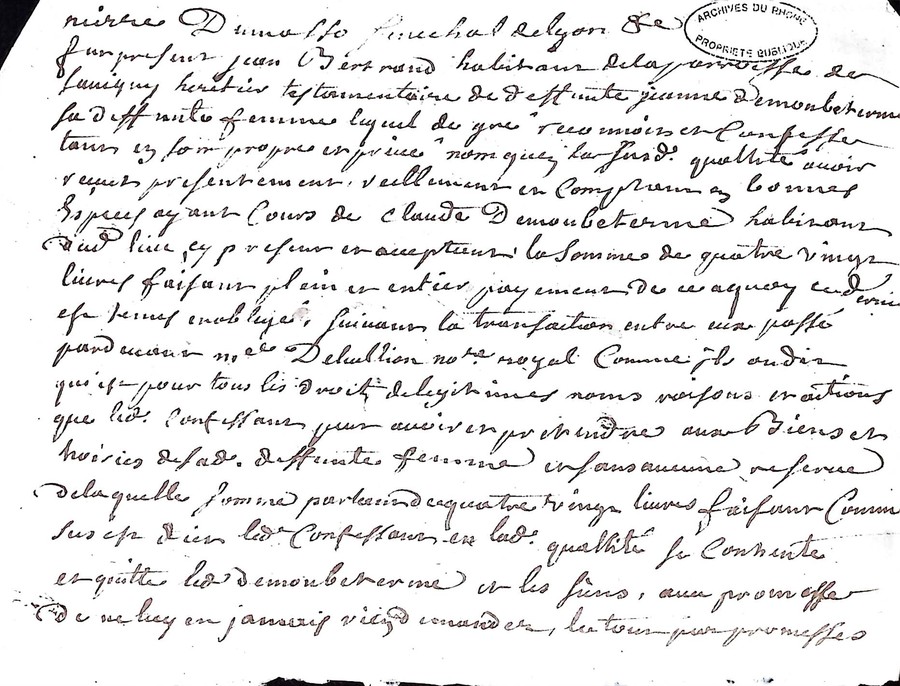 Dumasso senechal delyon &c
ARCHIVES DU RHONE
PROPRIETE PUBLIQUE
fut present jean Bertrand habitant delaparroisse de
savigny heritier testamentaire de deffunte jeanne demoubeterme
sa deffunte femme lequel de gré reconnoit et Confesse
tant en son propre et privé nom quen la susd. quallité avoir
reçut presentement, reellement et Comptant en bonnes
Especes ayant Cours de Claude Demoubeterme habitant
aud lieu cy present et acceptant la somme de quatre vingt
livres faisant plein et entier payement de ce aquoy ce dernier
est tenus et obligé, suivant la transaction entre eux passé
pardevant me Delullion nore royal Comme ils ont dit
qui est pour tous les droits delegitimes noms raisons et actions
que led. Confessant peut avoir et pretendre aux Biens et
hoiries desad. deffunte femme et sans aucune reserve
delaquelle somme de quatre vingt livres faisant Comm
sus est dit led. Confessant en lad. quallité se Contente
et quitte led demoubeterme et les siens, avec promesse
de ne luy en jamais rien demander, le tout par promesses